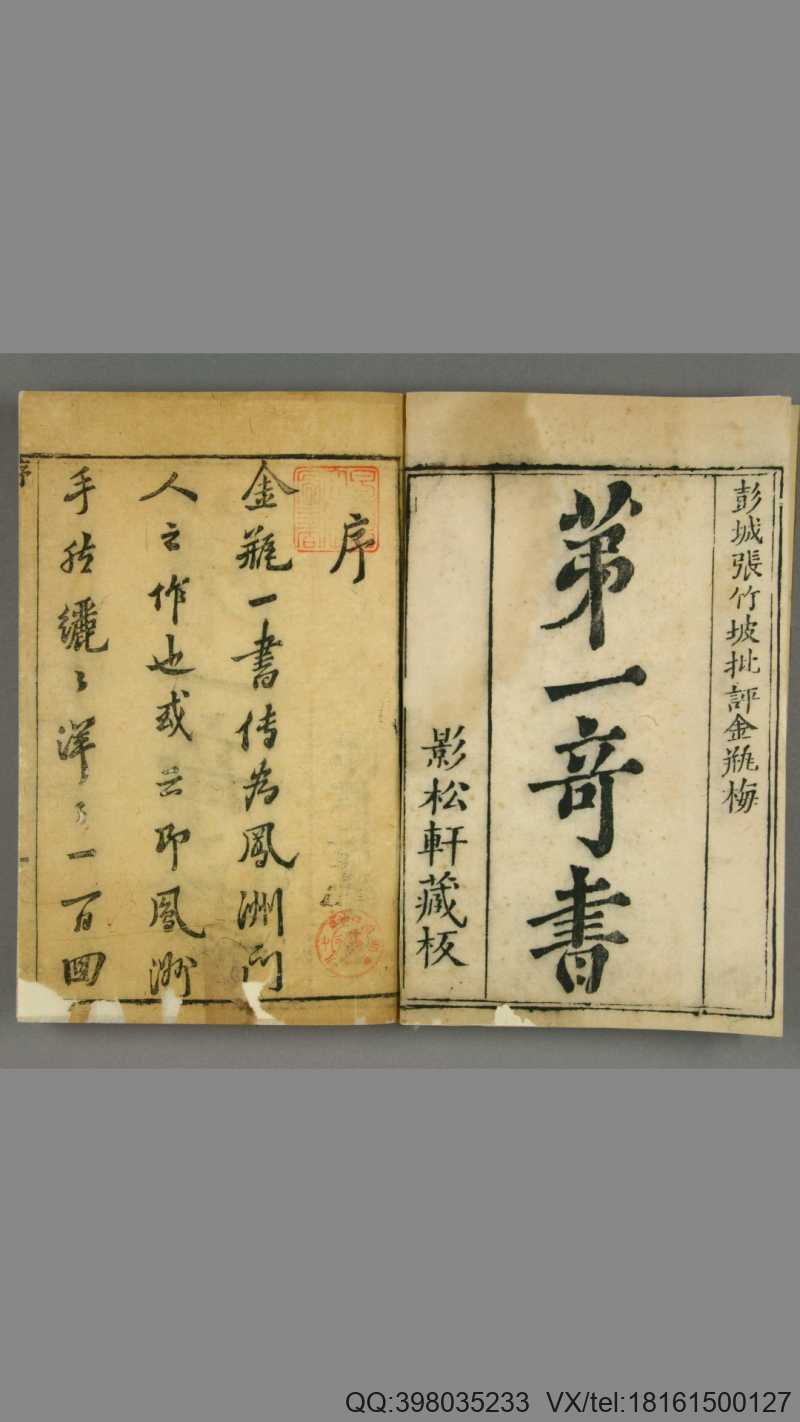 彭城張竹坡批評金瓶梅
第一奇書
影松軒藏板
序
金瓶一書傳為鳳洲門
人之作也或云即鳳洲
手然纚〻洋〻一百回
序
QQ:398035233 VX/tel:18161500127